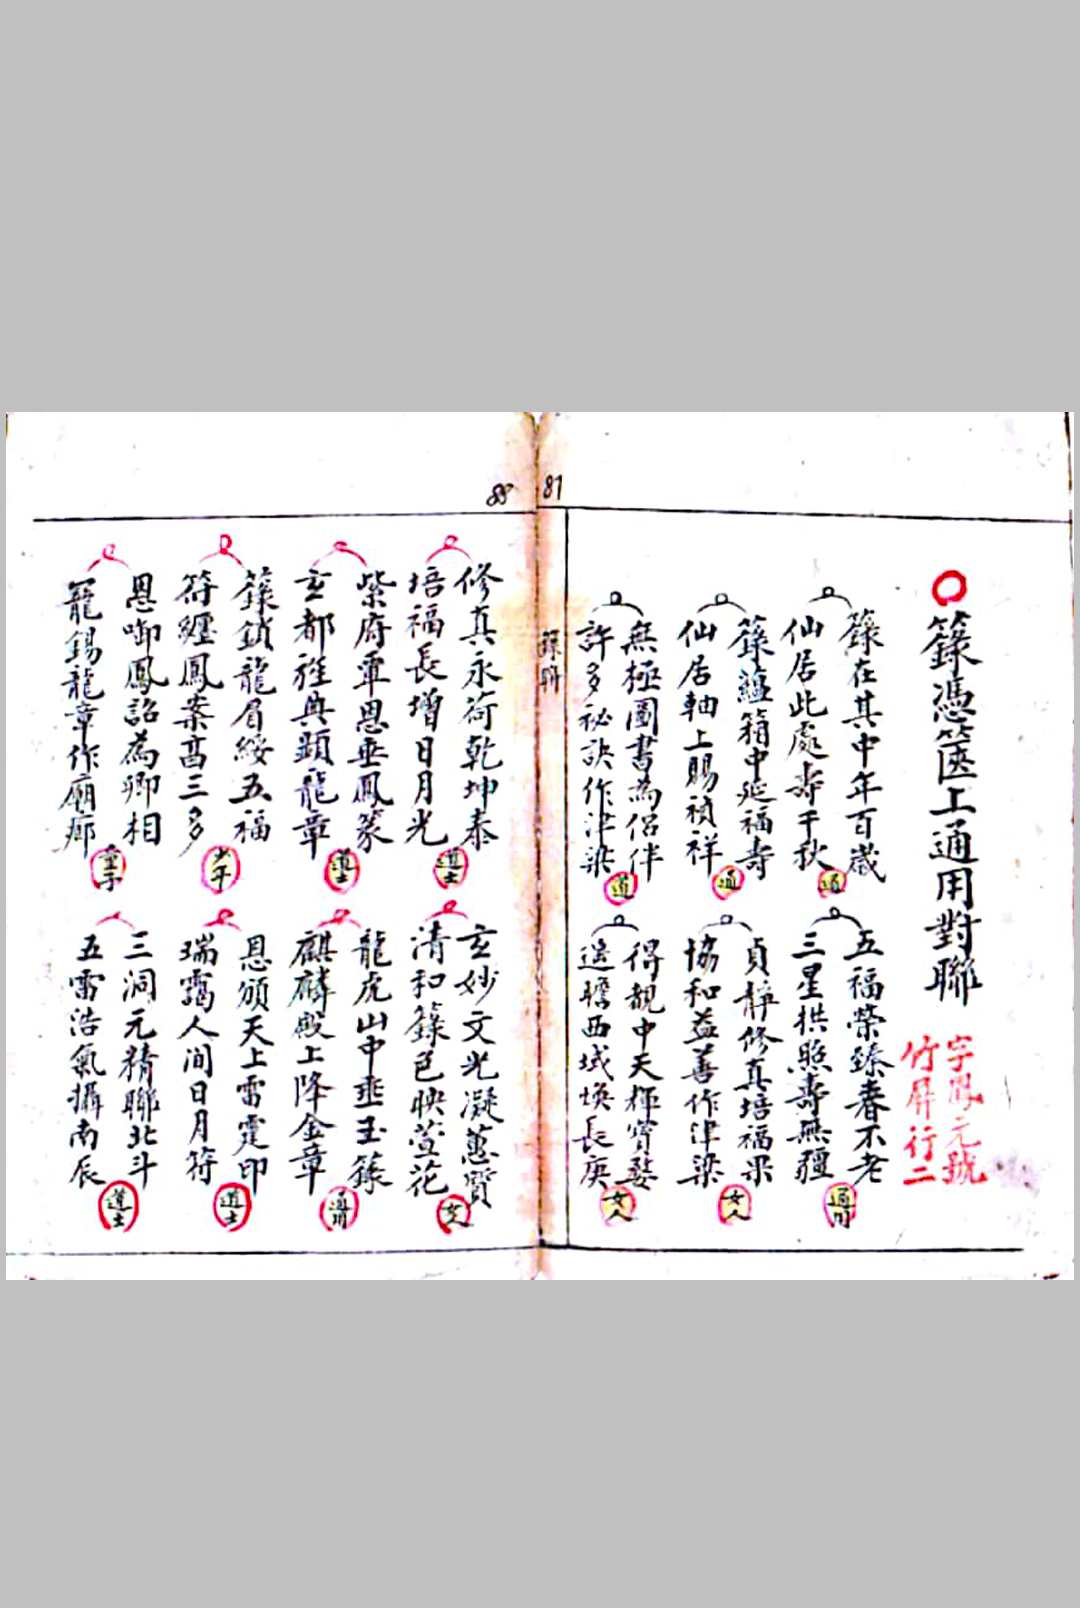 87
籙憑篋上通用對聯
字鳳元號
竹屏行二
籙在其中年百歲
仙居此處壽千秋
通
籙蘊箱中延福壽
仙居軸上賜禎祥
通
無極圖書為侶伴
許多祕訣作津梁
道
五福榮臻春不老
三星拱照壽無疆
通用
貞靜修真培福果
協和益善作津梁
女人
得覩中天輝寶婺
遙瞻西域煥長庚
女人
籙聯
88
修真永荷乾坤泰
培福長增日月光
道士
紫府覃恩垂鳳篆
玄都雅典顯龍章
道士
籙鎖龍眉綏五福
符纏鳳案富三多
少年
恩啣鳳詔為卿相
寵錫龍章作廟廊
童子
玄妙文光凝蕙質
清和籙色映萱花
女人
龍虎山中垂玉籙
麒麟殿上降金章
通用
恩頒天上雷霆印
瑞靄人間日月符
道士
三洞元精聯北斗
五雷浩氣攝南辰
道士